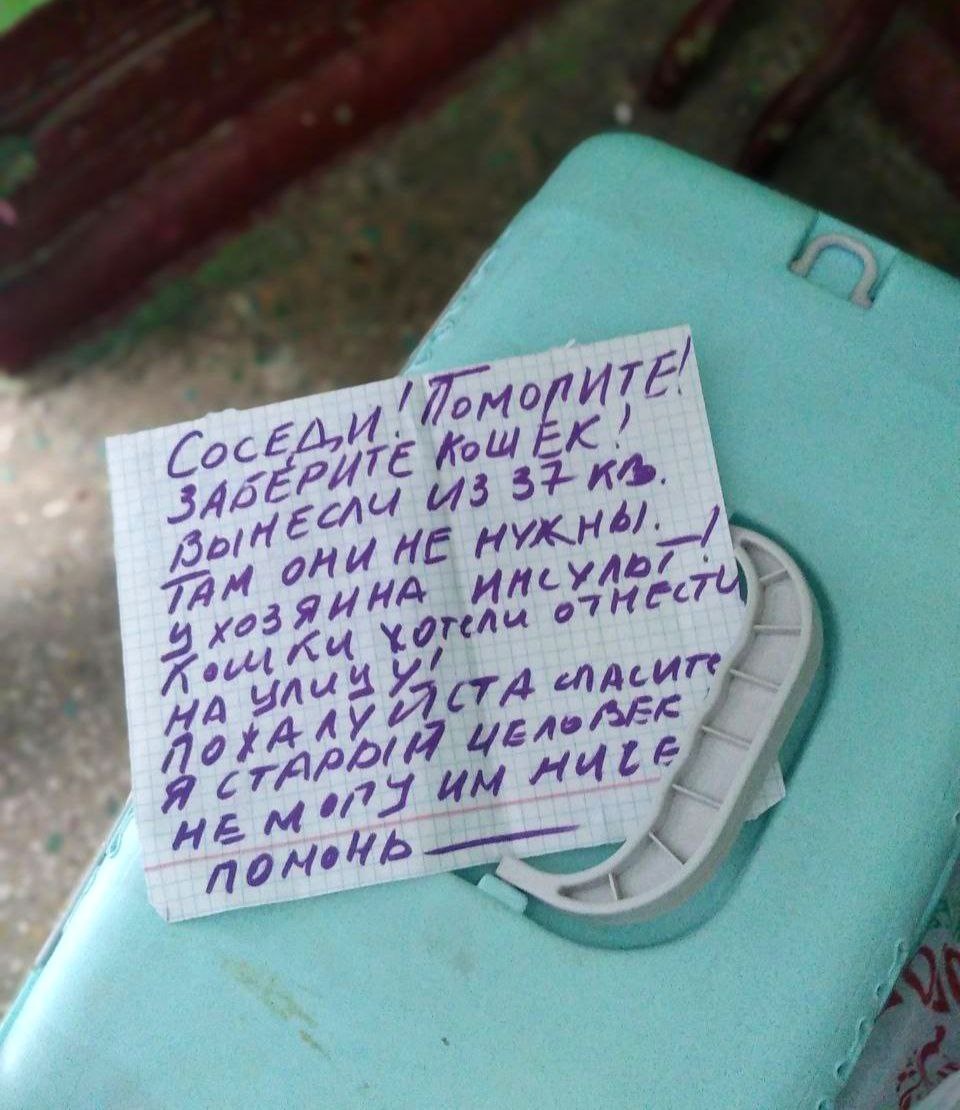 СОСЕДИ! ПОМОГИТЕ!
ЗАБЕРИТЕ КОШЕК!
ВЫНЕСЛИ ИЗ 37 КВ.
ТАМ ОНИ НЕ НУЖНЫ.
У ХОЗЯИНА ИНСУЛЬТ!
КОШКИ ХОТЕЛИ ОТНЕСТИ
НА УЛИЦУ!
ПОЖАЛУЙСТА СПАСИТЕ
Я СТАРЫЙ ЧЕЛОВЕК
НЕ МОГУ ИМ НИЧЕ
ПОМОЧЬ